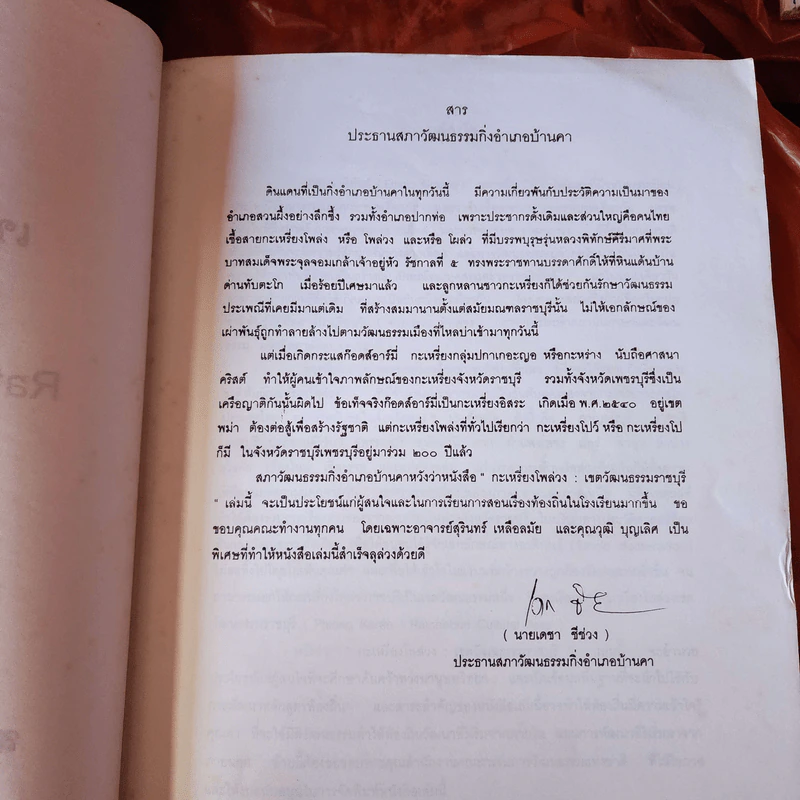 สาร
ประธานสภาวัฒนธรรมกิ่งอำเภอบ้านคา
ดินแดนที่เป็นกิ่งอำเภอบ้านคาในทุกวันนี้ มีความเกี่ยวพันกับประวัติความเป็นมาของ
อำเภอสวนผึ้งอย่างลึกซึ้ง รวมทั้งอำเภอปากท่อ เพราะประชากรดั้งเดิมและส่วนใหญ่คือคนไทย
เชื้อสายกะเหรี่ยงโพล่ง หรือ โพล่วง และหรือ โผล่ว ที่มีบรรพบุรุษรุ่นหลวงพิทักษ์คีรีมาศที่พระ
บาทสมเด็จพระจุลจอมเกล้าเจ้าอยู่หัว รัชกาลที่ ๕ ทรงพระราชทานบรรดาศักดิ์ให้ที่หินแด้นบ้าน
ด่านทับตะโก เมื่อร้อยปีเศษมาแล้ว และลูกหลานชาวกะเหรี่ยงก็ได้ช่วยกันรักษาวัฒนธรรม
ประเพณีที่เคยมีมาแต่เดิม ที่สร้างสมมานานตั้งแต่สมัยมณฑลราชบุรีนั้น ไม่ให้เอกลักษณ์ของ
เผ่าพันธุ์ถูกทำลายล้างไปตามวัฒนธรรมเมืองที่ไหลบ่าเข้ามาทุกวันนี้
แต่เมื่อเกิดกระแสก๊อดส์อาร์มี่ กะเหรี่ยงกลุ่มปกาเกอะญอ หรือกะหร่าง นับถือศาสนา
คริสต์ ทำให้ผู้คนเข้าใจภาพลักษณ์ของกะเหรี่ยงจังหวัดราชบุรี รวมทั้งจังหวัดเพชรบุรีซึ่งเป็น
เครือญาติกันนั้นผิดไป ข้อเท็จจริงก๊อดส์อาร์มี่เป็นกะเหรี่ยงอิสระ เกิดเมื่อ พ.ศ.๒๕๔๐ อยู่เขต
พม่า ต้องต่อสู้เพื่อสร้างรัฐชาติ แต่กะเหรี่ยงโพล่งที่ทั่วไปเรียกว่า กะเหรี่ยงโปว์ หรือ กะเหรี่ยงโป
ก็มี ในจังหวัดราชบุรีเพชรบุรีอยู่มาร่วม ๒๐๐ ปีแล้ว
สภาวัฒนธรรมกิ่งอำเภอบ้านคาหวังว่าหนังสือ " กะเหรี่ยงโพล่วง : เขตวัฒนธรรมราชบุรี
" เล่มนี้ จะเป็นประโยชน์แก่ผู้สนใจและในการเรียนการสอนเรื่องท้องถิ่นในโรงเรียนมากขึ้น ขอ
ขอบคุณคณะทำงานทุกคน โดยเฉพาะอาจารย์สุรินทร์ เหลือลมัย และคุณวุฒิ บุญเลิศ เป็น
พิเศษที่ทำให้หนังสือเล่มนี้สำเร็จลุล่วงด้วยดี
( นายเดชา ชีช่วง )
ประธานสภาวัฒนธรรมกิ่งอำเภอบ้านคา